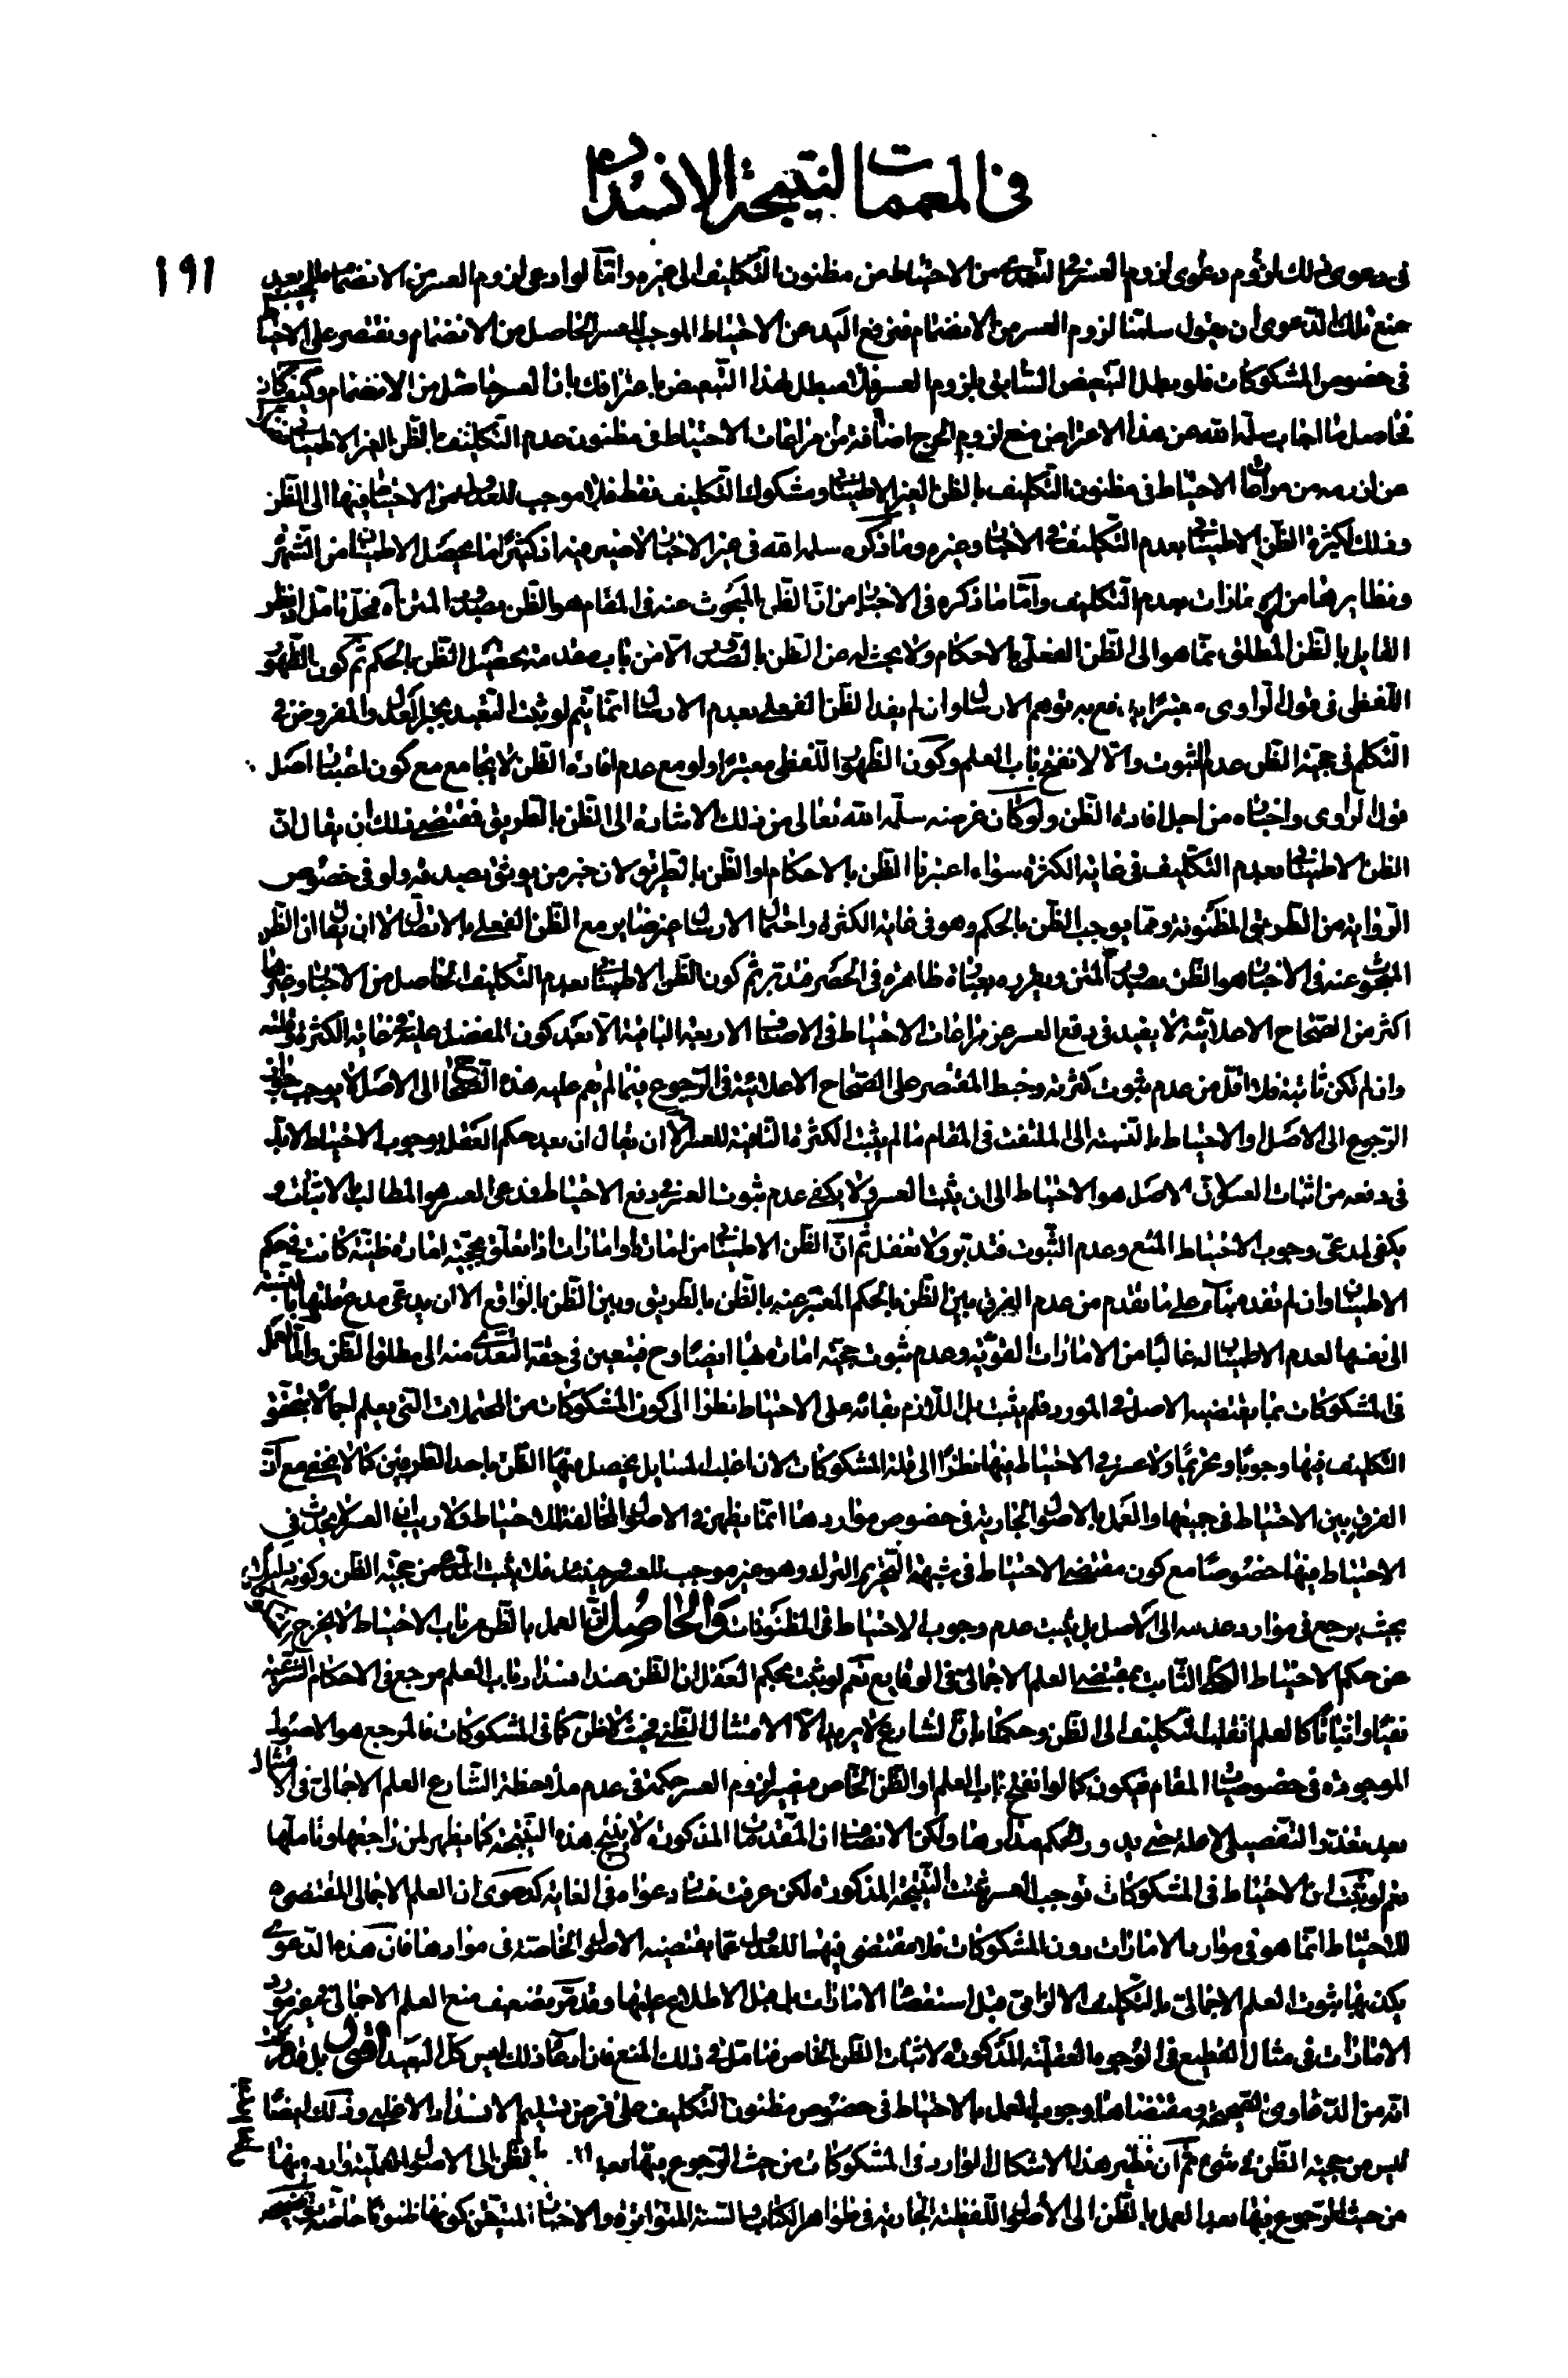 في المعممات لنتيجة الانسداد
١٩١
في دعوى ذلك لزوم دعوى لزوم العسر في التعدي من الاحتياط من مظنون التكليف الى غيره وامّا لو ادعى لزوم العسر من الانضمام
منع تلك الدعوى ان يقول سلمنا لزوم العسر من الانضمام فنرفع اليد عن الاحتياط الموجب للعسر الحاصل من الانضمام ونقتصر على الاحتياط
في خصوص المشكوكات فلو بطل التبعيض السابق بلزوم العسر فلا مبطل لهذا التبعيض باعترافك بان العسر حاصل من الانضمام وكيف كان
فحاصل ما اجاب سلمه الله عن هذا الاعتراض منع لزوم الحرج اضافة من مراعات الاحتياط في مظنون عدم التكليف بالظن الغير الاطميناني
من مراعات الاحتياط في مظنون التكليف بالظن الغير الاطميناني ومشكوك التكليف فقط فلا موجب للعدول من الاحتياط فيها الى الظن
وذلك لكثرة الظن الاطميناني بعدم التكليف في الاخبار وغيره وما ذكره سلمه الله في غير الاخبار لا ضير فيه اذ كثيرا ما يحصل الاطمينان من الشهرة
ونظايرها من الامارات بعدم التكليف وامّا ما ذكره في الاخبار من ان الظن المبحوث عنه في المقام هو الظن بصدور المتن آه فمحل تأمل
القابل بالظن المطلق ممّا هو الى الظن الفعلي بالاحكام ولا بحث له عن الظن بالصدور الا من باب مقدمة تحصيل الظن بالحكم ثم كون الظهور
اللفظي في قول الراوي معتبرا يدفع به توهم الارسال وان لم يفد الظن الفعلي بعدم الارسال انما يتم لو ثبت التعبد بخبر العدل والمفروض في
التكلم في حجية الظن عدم الثبوت والا لانفتح باب العلم وكون الظهور اللفظي معتبرا ولو مع عدم افادة الظن لا يجامع مع كون اعتبار اصل
قول الراوي واخباره من اجل افادة الظن ولو كان غرضه سلمه الله تعالى من ذلك الاشارة الى الظن بالطريق فمقتضى ذلك ان يقال ان
الظن الاطميناني بعدم التكليف في غاية الكثرة سواء اعتبرنا الظن بالاحكام او الظن بالطريق لان خبر من يوثق بصدقه ولو في خصوص
الرواية من الطريق المظنونة وممّا يوجب الظن بالحكم وهو في غاية الكثرة واحتمال الارسال غير ضاير مع الظن الفعلي بالاتصال الا ان يقال ان الظن
المبحوث عنه في الاخبار هو الظن بصدور المتن
اكثر من الصحاح الاعلائية لا يفيد في دفع العسر عن مراعات الاحتياط في الاصناف الاربعة الباقية الا بعد كون المفضل عليه في غاية الكثرة
وان لم تكن ثابتة فلا اقل من عدم ثبوت كثرته وخبط المقتصر على الصحاح الاعلائية في الرجوع فيما لم يقم عليه هذه الصحاح الى الاصل لا يوجب جواز
الرجوع الى الاصل او الاحتياط بالنسبة الى الملتفت في المقام ما لم يثبت الكثرة النافية للعسر الا ان يقال ان بعد حكم العقل بوجوب الاحتياط لا بد
في دفعه من اثبات العسر لان الاصل هو الاحتياط الى ان يثبت العسر ولا يكفي عدم ثبوت العسر في دفع الاحتياط فمدعي العسر هو المطالب بالاثبات و
يكفي لمدعي وجوب الاحتياط المنع وعدم الثبوت فتدبر ولا تغفل ثم ان الظن الاطميناني من امارة او امارات اذا تعلق بحجية امارة ظنية كانت في حكم
الاطمينان وان لم تفده بناء على ما تقدم من عدم الفرق بين الظن بالحكم المعبر عنه بالظن بالطريق وبين الظن بالواقع الا ان يدعي مدع قلتها بالنسبة
الى نفسها لعدم الاطمينان له غالبا من الامارات القوية وعدم ثبوت حجية امارة بها ايضا وح فيتعين في حقه التعدي منه الى مطلق الظن وامّا العمل
في المشكوكات بما يقتضيه الاصل في المورد فلم يثبت بل اللازم بقائه على الاحتياط نظرا الى كون المشكوكات من المحتملات التي يعلم اجمالا بتحقق
التكليف فيها وجوبا وتحريما ولا عسر في الاحتياط فيها نظرا الى قلة المشكوكات لان اغلب المسايل يحصل فيها الظن باحد الطرفين كما لا يخفى مع ان
الفرق بين الاحتياط في جميعها والعمل بالاصول الجارية في خصوص مواردها انما يظهر في الاصول المخالفة للاحتياط ولا ريب ان العسر لا يحدث في
الاحتياط فيها خصوصا مع كون مقتضى الاحتياط في شبهة التحريم الترك وهو غير موجب للعسر فلا يثبت المدعى من حجية الظن وكونه دليلا
بحيث يرجع في موارد عدمه الى الاصل بل يثبت عدم وجوب الاحتياط في المظنونات والحاصل ان العمل بالظن من باب الاحتياط لا يخرج
عن حكم الاحتياط الكلي الثابت بمقتضى العلم الاجمالي في الوقايع نعم لو ثبت بحكم العقل ان الظن عند انسداد باب العلم مرجع في الاحكام الشرعية
نفيا واثباتا كالعلم انقلب التكليف الى الظن وحكمنا بان الشارع لا يريد الا الامتثال الظني فحيث لا ظن كما في المشكوكات فالمرجع هو الاصول
الموجودة في خصوصيات المقام فيكون كما لو انفتح باب العلم او الظن الخاص فيصير لزوم العسر حكمة في عدم ملاحظة الشارع العلم الاجمالي في الامتثال
بعد تعذر التفصيلي لا علة حتى يدور الحكم مدارها ولكن الانصاف ان المقدمات المذكورة لا ينتج هذه النتيجة كما يظهر لمن راجعها وتاملها
نعم لو ثبت ان الاحتياط في المشكوكات توجب العسر ثبت النتيجة المذكورة لكن عرفت فساد دعواه في الغاية كدعوى ان العلم الاجمالي المقتضى
للاحتياط انما هو في موارد الامارات دون المشكوكات فلا مقتضى فيها للعدول عما يقتضيه الاصول الخاصة في مواردها فان هذه الدعوى
يكذبها ثبوت العلم الاجمالي بالتكليف الالزامي قبل استقصاء الامارات بل قبل الاطلاع عليها وقد مر تضعيف منع العلم الاجمالي في غير مورد
الامارات في مثال القطيع في الوجوه العقلية المذكورة لاثبات الظن الخاص فتامل في ذلك المنع فان ادعاء ذلك ليس كل البعيد اقول بل قد مر
انه من الدعاوي الصحيحة ومقتضاها وجوب العمل بالاحتياط في خصوص مظنون التكليف على فرض تسليم الانسداد الاغلبي وذلك ايضا
ليس من حجية الظن في شيء ثم ان نظير هذا الاشكال الوارد في المشكوكات من حيث الرجوع فيها بعد بالظن الى الاصول العملية وارد فيها
من حيث الرجوع فيها بعد العمل بالظن الى الاصول اللفظية الجارية في ظواهر الكتاب والسنة المتواترة والاخبار المتيقن كونها ظنونا خاصة